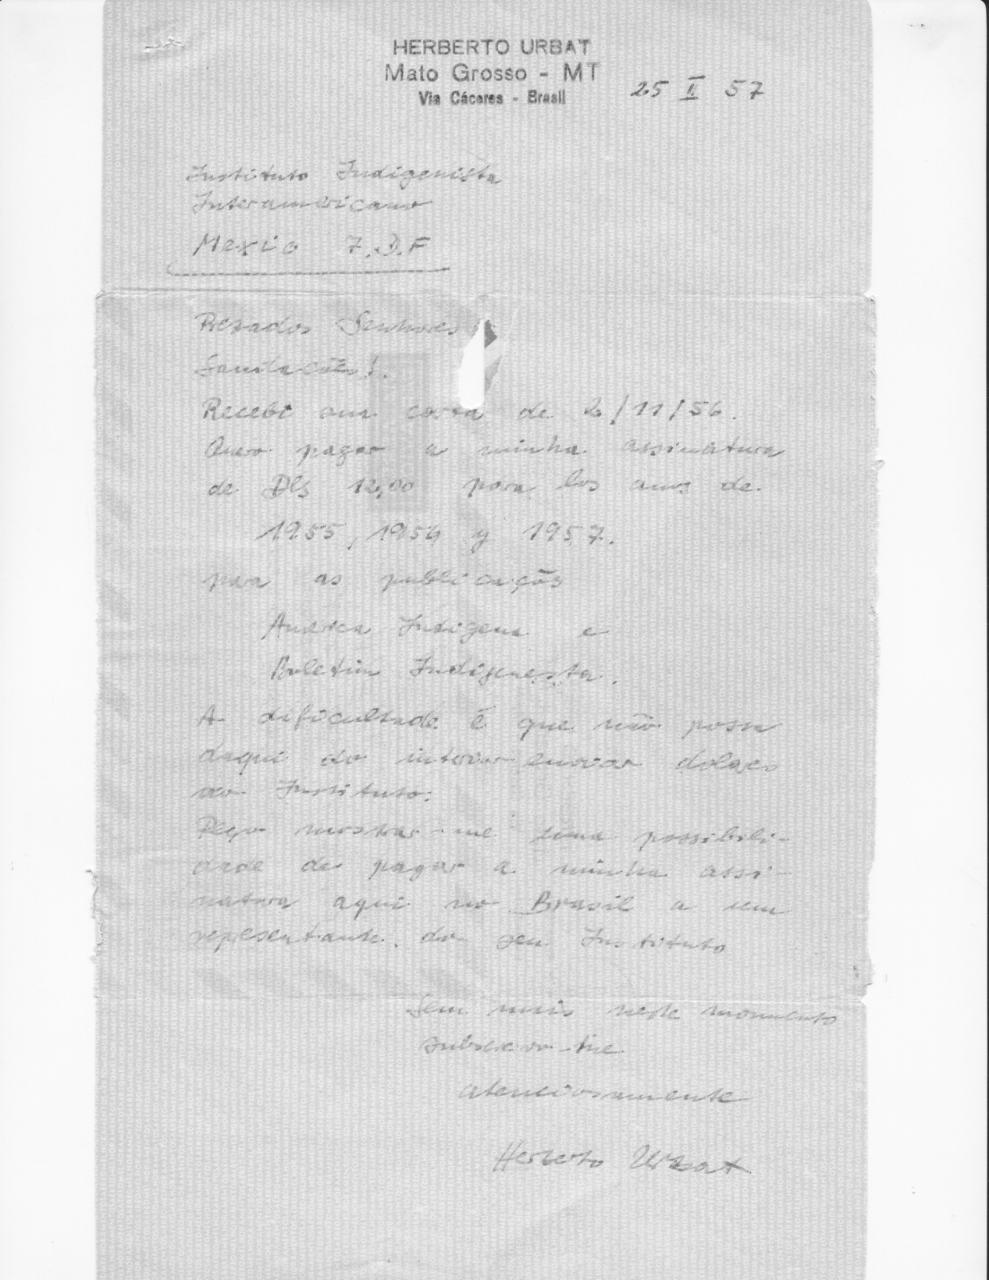 HERBERTO URBAT
Mato Grosso - MT
Via Cáceres - Brasil
25 II 57
Instituto Indigenista
Interamericano
Mexico 7. D.F
Prezados Senhores
Saudações!
Recebi sua carta de 2/11/56.
Quero pagar a minha assinatura
de Dls 12,00 para los anos de
1955, 1956 y 1957.
para as publicações
America Indigena e
Boletin Indigenista.
A dificultade é que não posso
daqui do interior enviar dolares
ao Instituto.
Peço mostrar-me uma possibili-
dade de pagar a minha assi-
natura aqui no Brasil a um
representante do seu Instituto
Sem mais neste momento
subscrevo-me
atenciosamente
Herberto Urbat